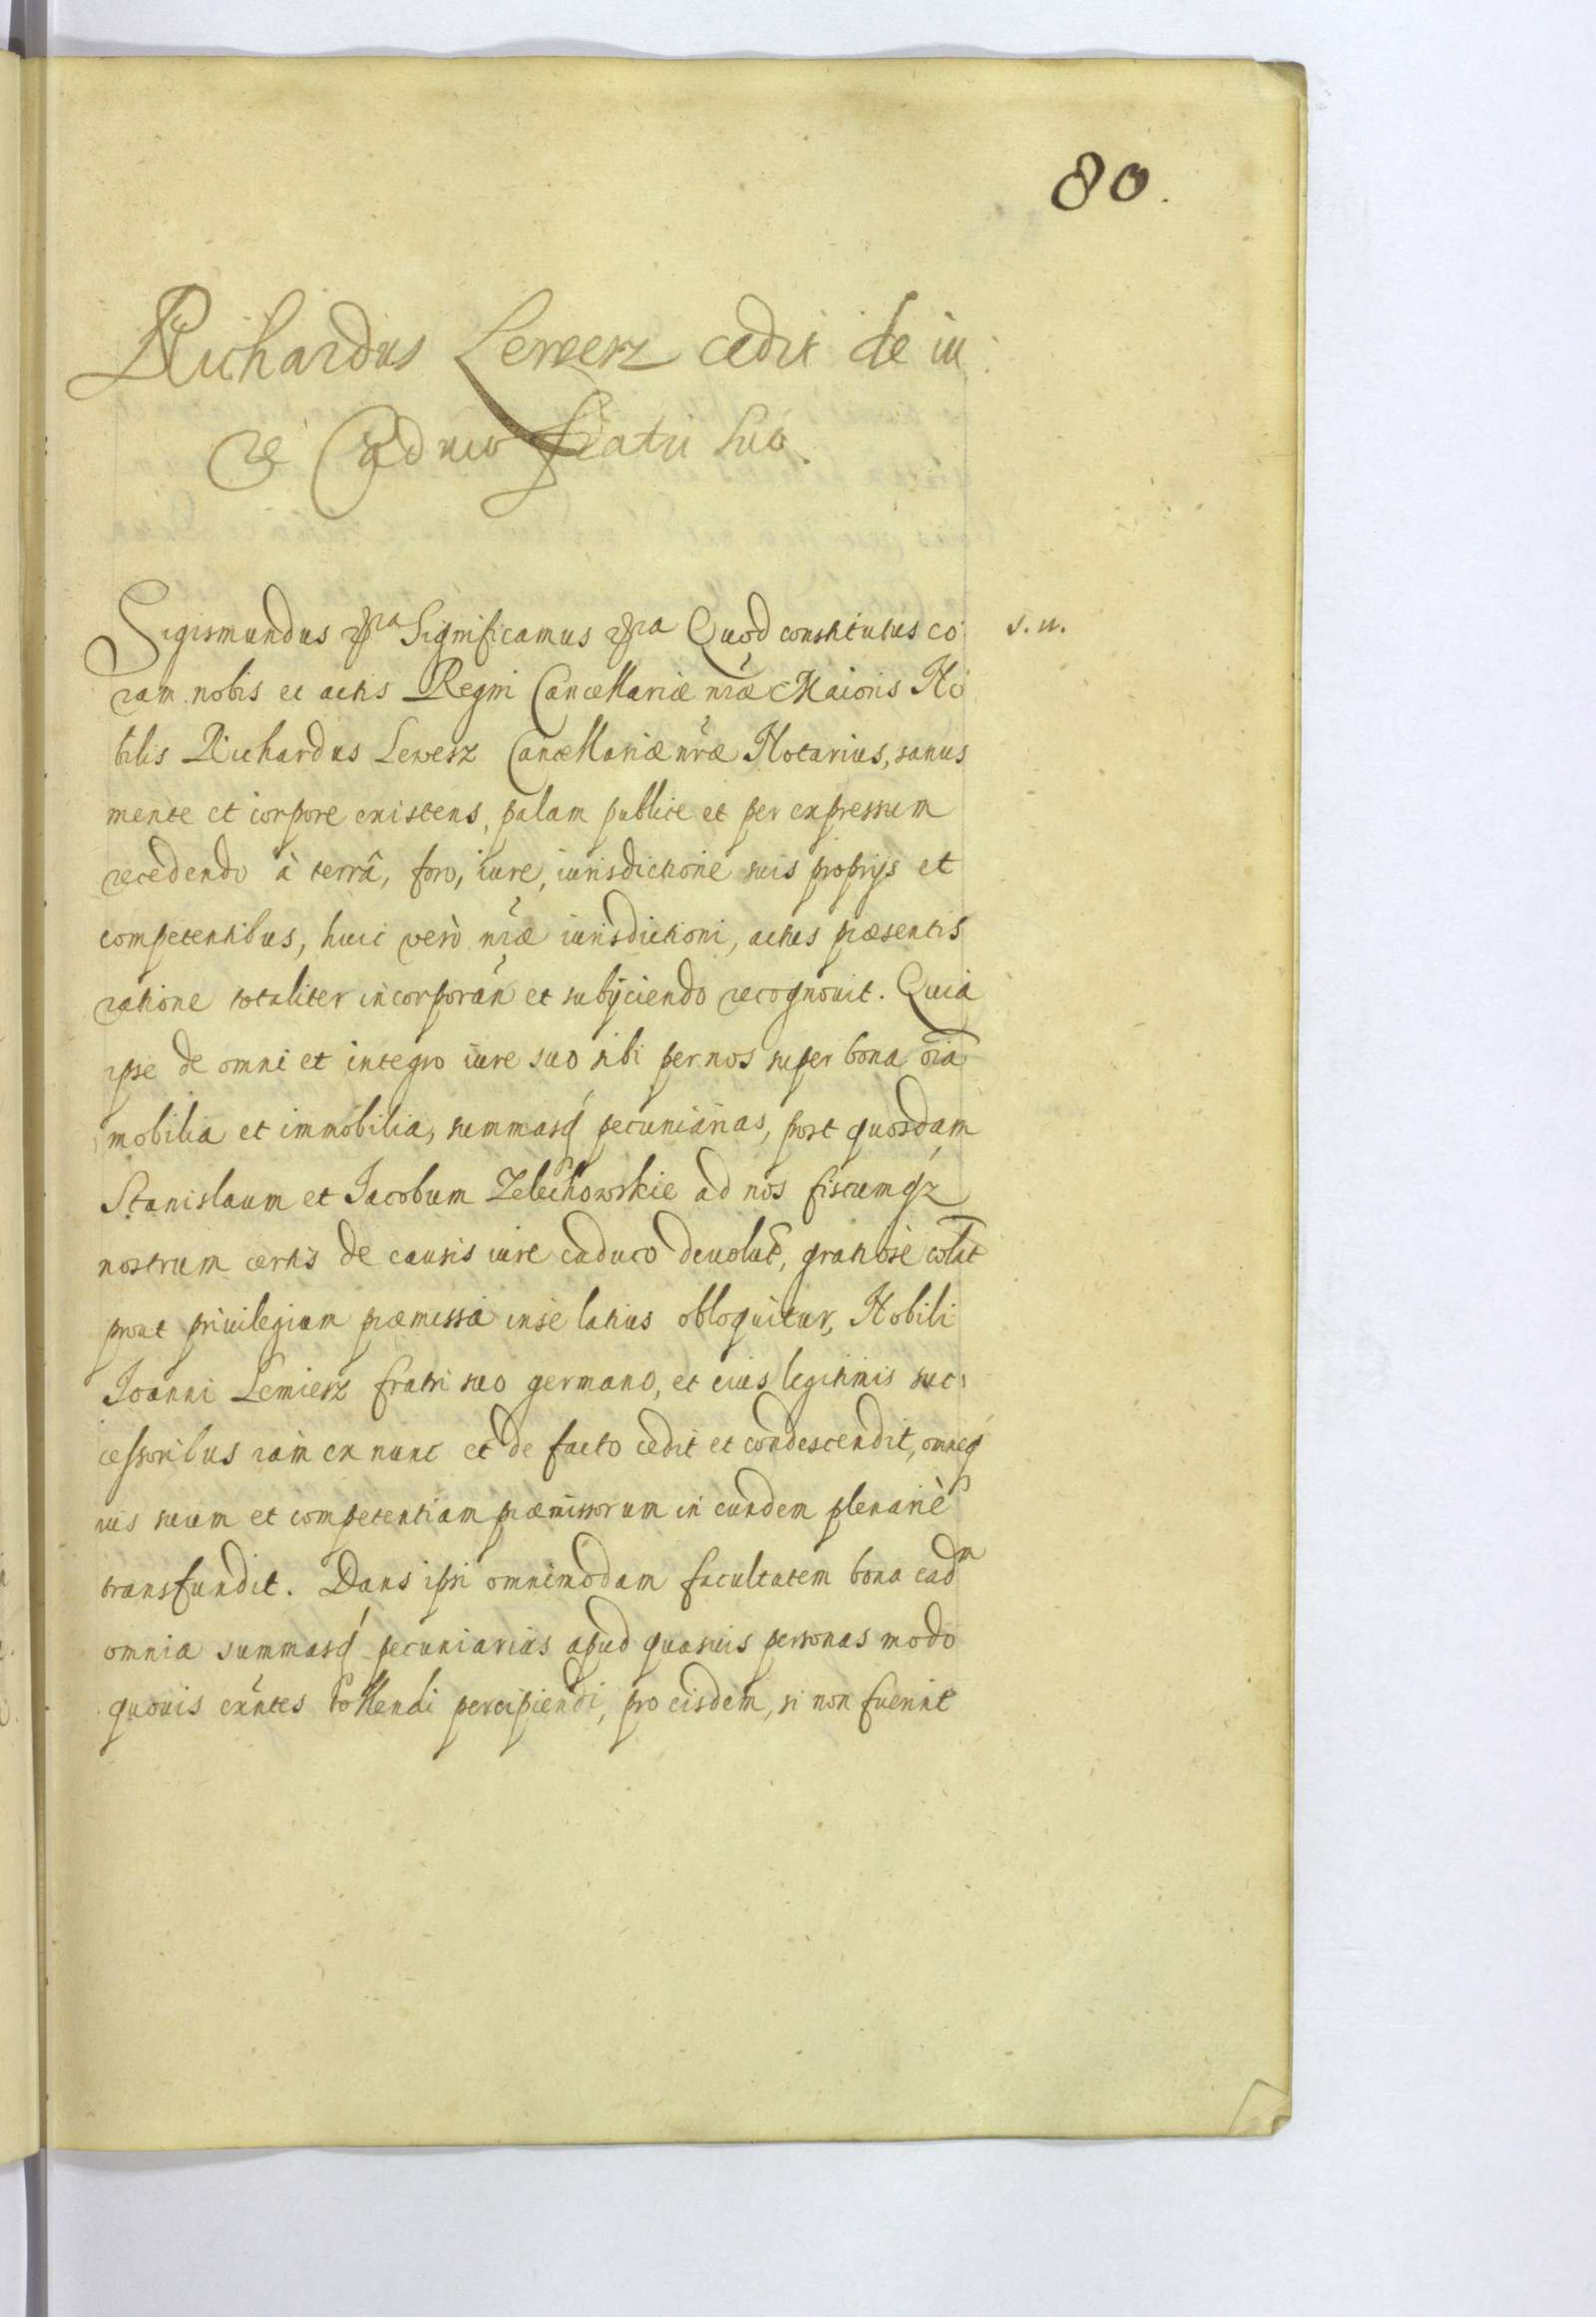 80.
Richardus Lewerz cedit de iu
re Caduco fratri suo.
Sigismundus &ra Significamus &ra Quod constitutus co
s. n.
ram nobis et actis Regni Cancellariæ nr̃æ Maioris No
bilis Richardus Lewesz Cancellariæ nr̃æ Notarius, sanus
mente et corpore existens, palam publice et per expressum
recedendo à terrâ, foro, iure, iurisdictione suis proprijs et
competentibus, huic verò nr̃æ iurisdictioni, actus præsentis
ratione totaliter incorporañ et subijciendo recognouit. Quia
ipse de omni et integro iure suo sibi per nos super bona oĩa
mobilia et immobilia, summasq́ pecuniarias, post quosdam
Stanislaum et Jacobum Zelechowskie ad nos fiscumq́z
nostrum certis de causis iure caduco deuolut̃, gratiosè colat̃
prout priuilegium præmissa in se latius obloquitur, Nobili
Joanni Lemiesz fratri suo germano, et eius legitimis suc:
cessoribus iam ex nunc et de facto cedit et condescendit, omneq́
ius suum et competentiam præmissorum in eundem plenariè
transfundit. Dans ipsi omnimodam facultatem bona eadm
omnia summasq́ pecuniarias apud quasuis personas modo
quouis exñtes tollendi percipiendi, pro eisdem, si non fuerint